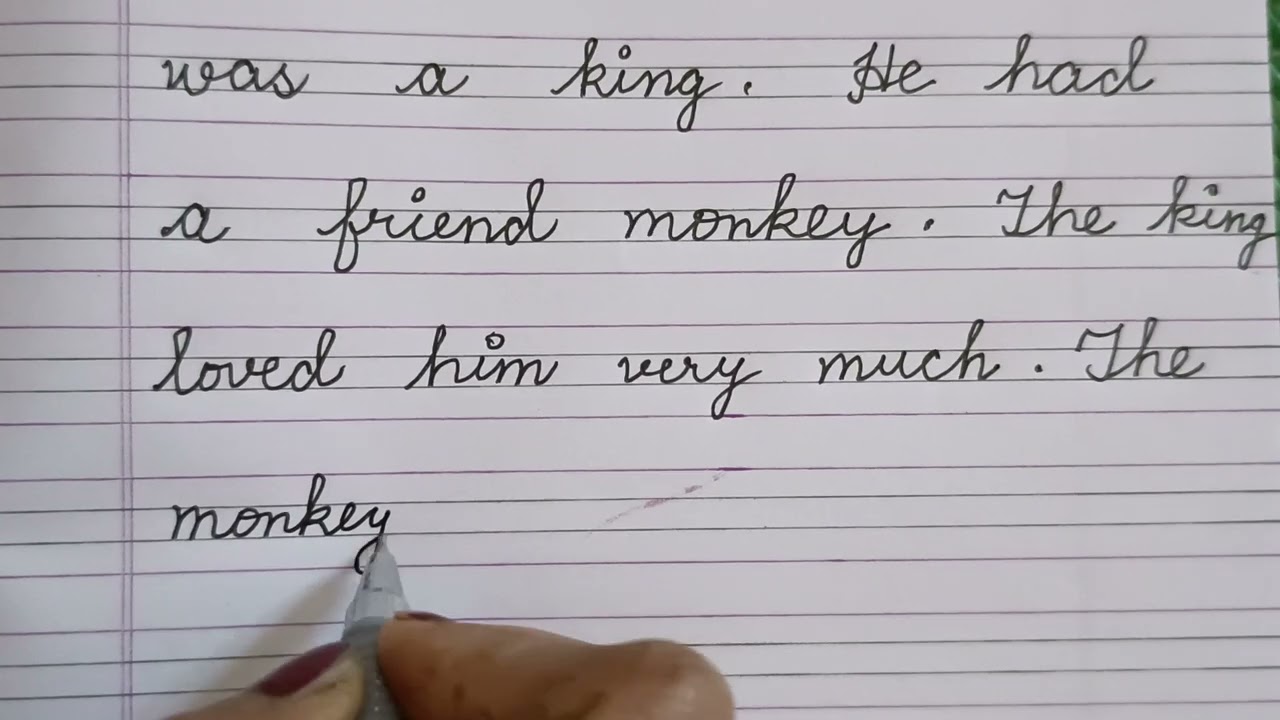 was a king. He had
a friend monkey. The king
loved him very much. The
monkey